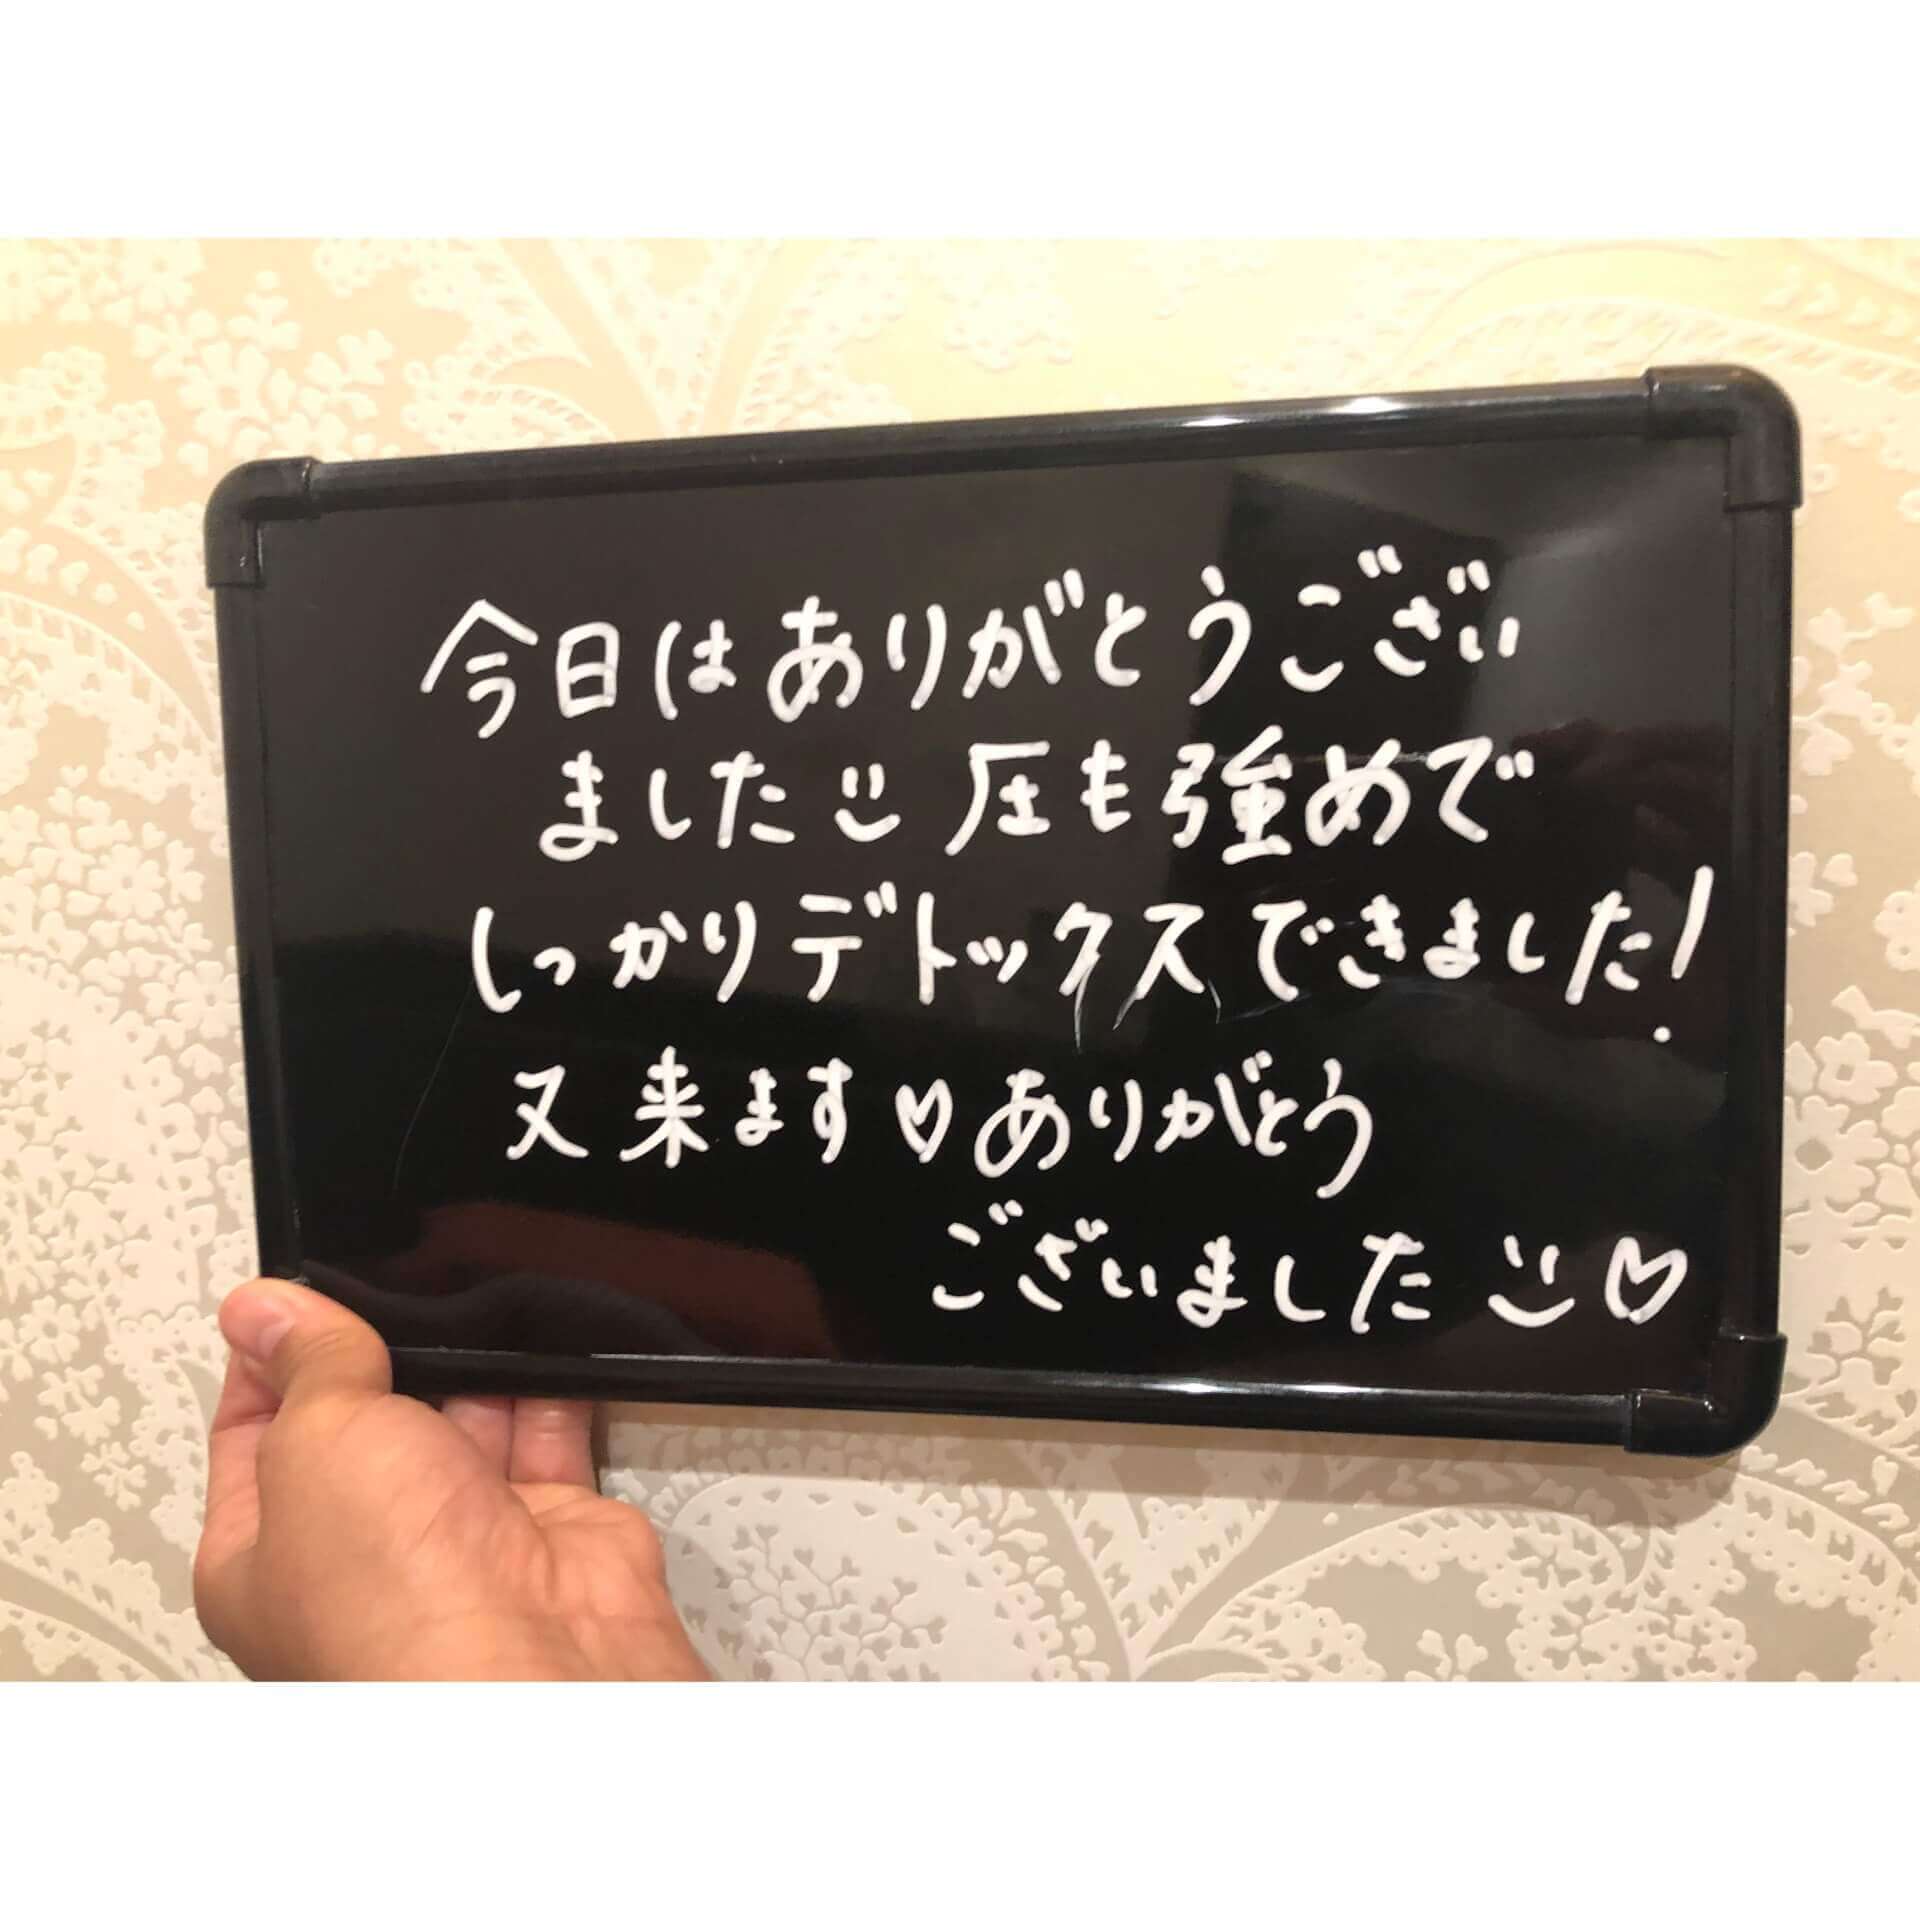 今日はありがとうござい
ました 圧も強めで
しっかりデトックスできました!
又来ます♡ありがとう
ございました ♡